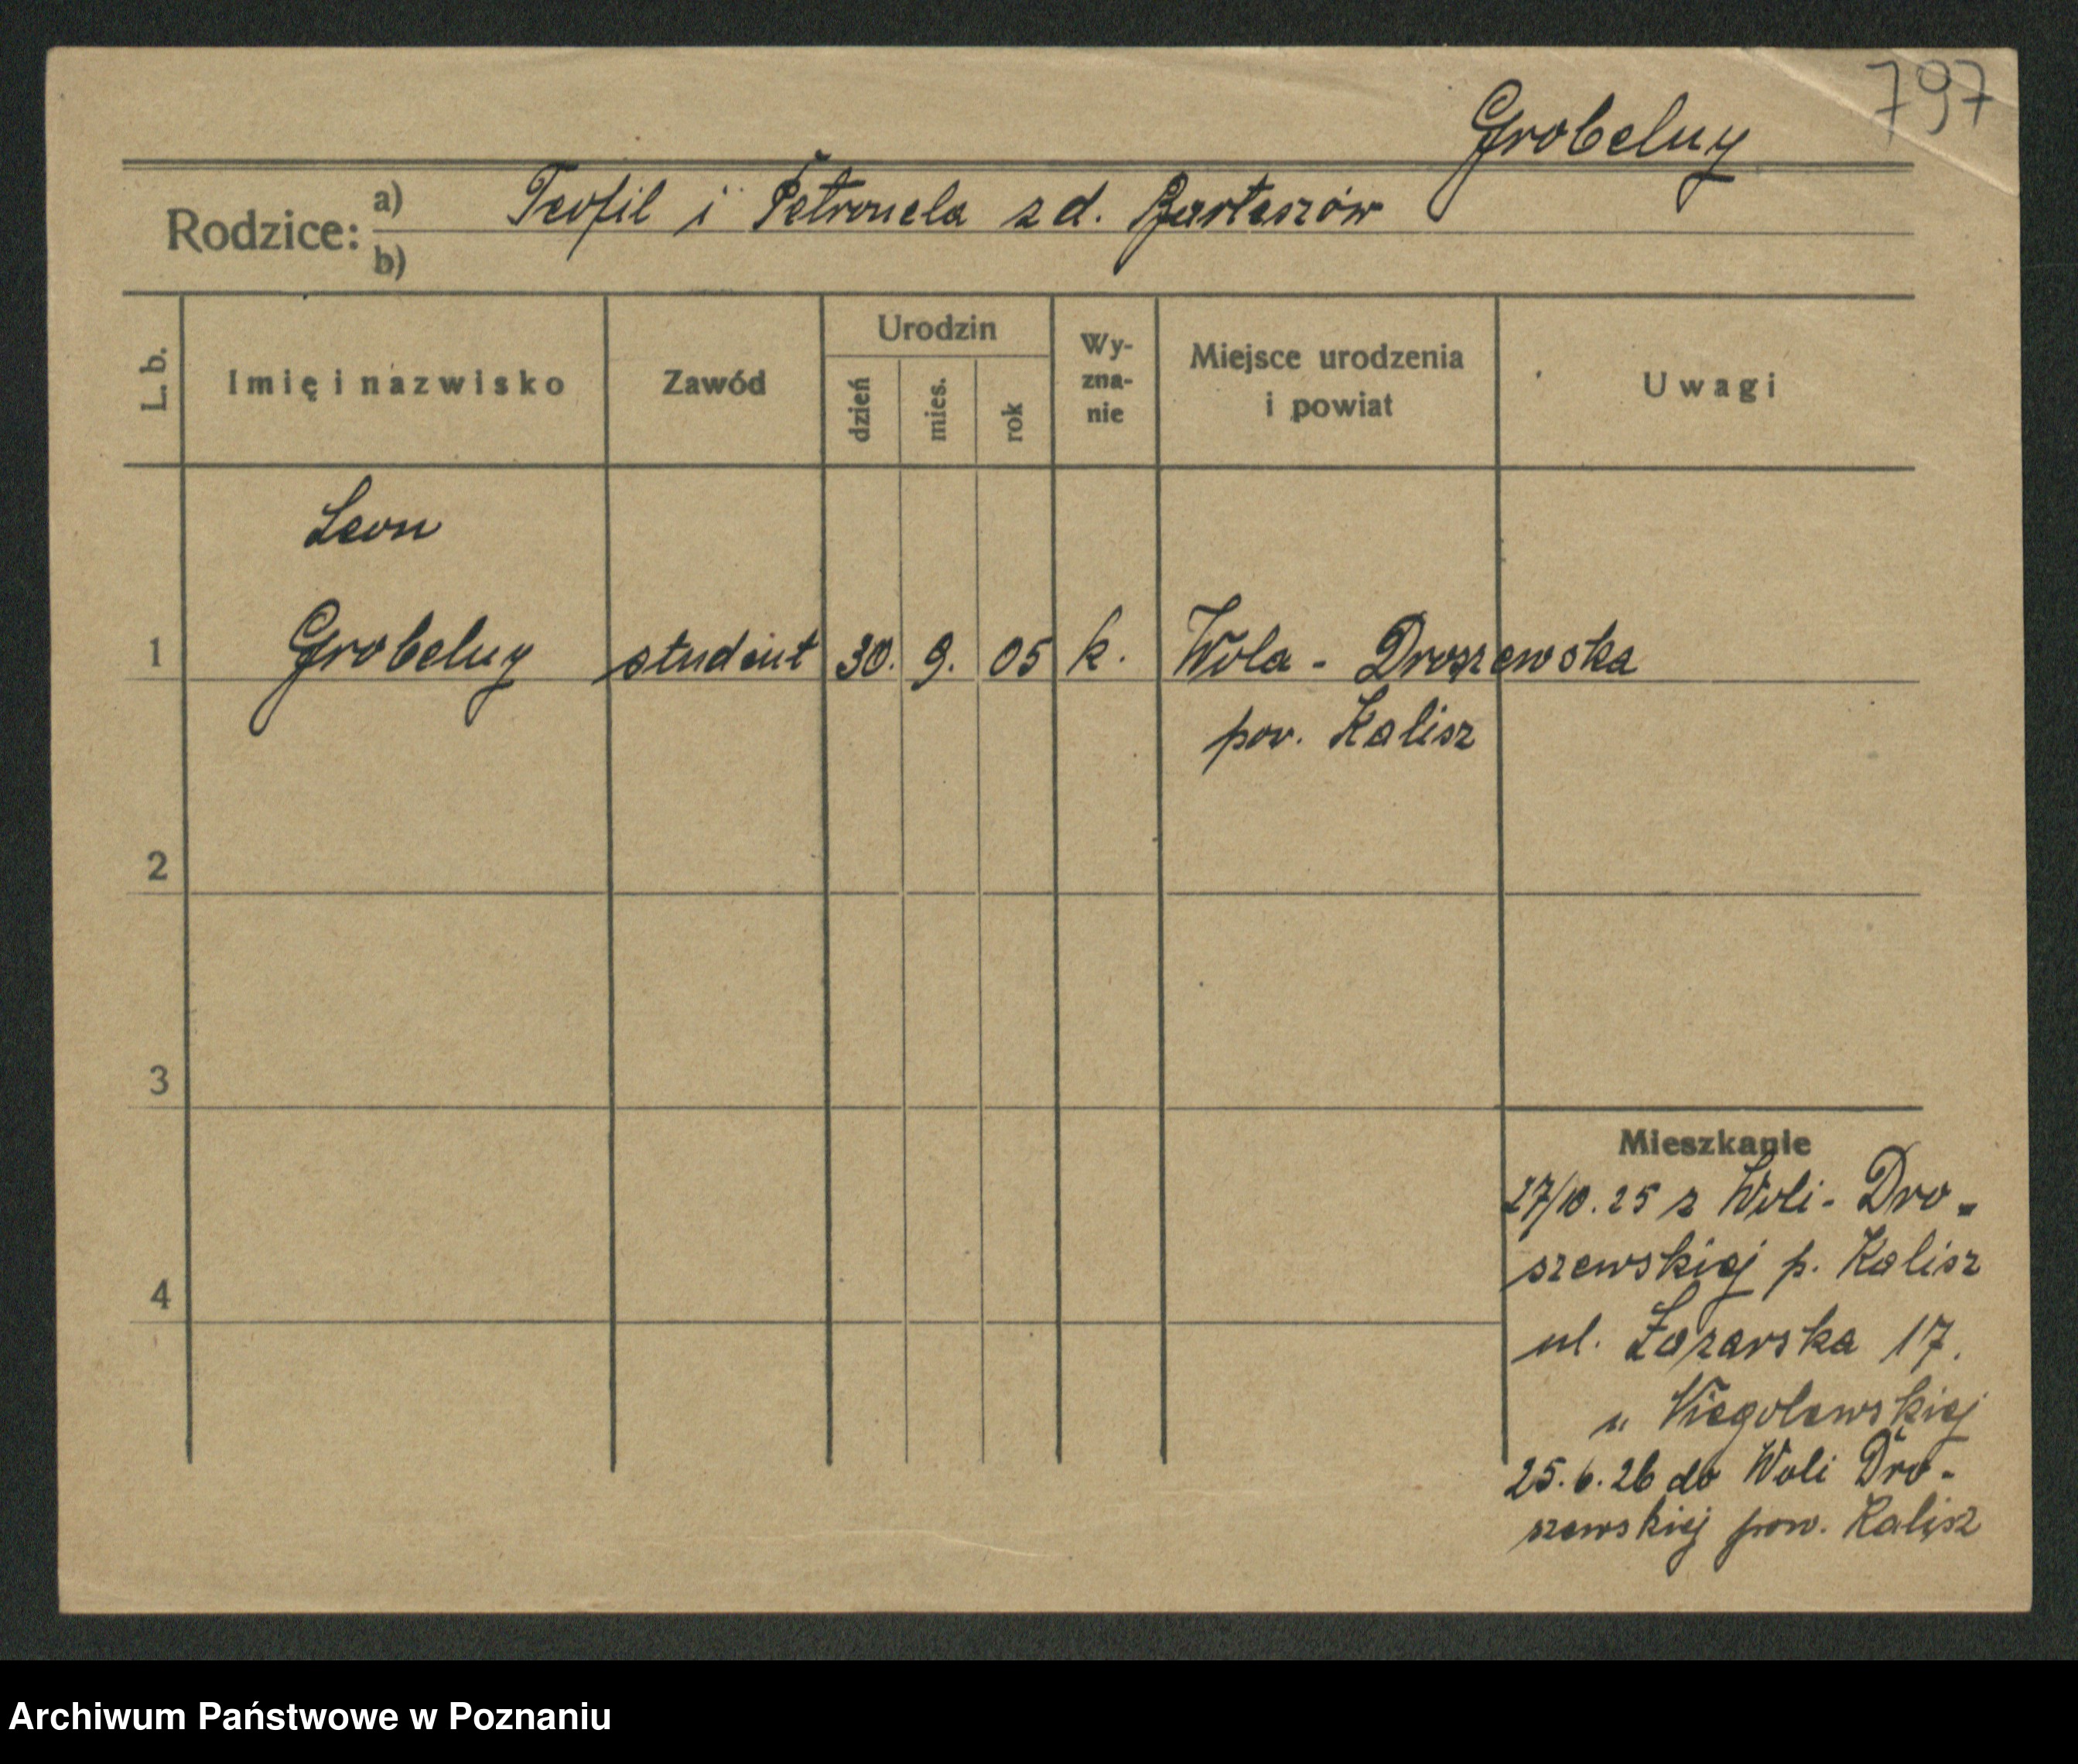 797
Grobelny
Rodzice: a) Teofil i Petronela z d. Bartaszów
b)
L. b.
Imię i nazwisko
Zawód
Urodzin
dzień
mies.
rok
Wy-
zna-
nie
Miejsce urodzenia
i powiat
Uwagi
Leon
1 Grobelny student 30. 9. 05 k. Wola - Droszewska
pow. Kalisz
2
3
4
Mieszkanie
27/10. 25 z Woli - Dro-
szewskiej p. Kalisz
ul. Łazarska 17.
u
25. 6. 26 do Woli Dro-
szewskiej pow. Kalisz
Archiwum Państwowe w Poznaniu